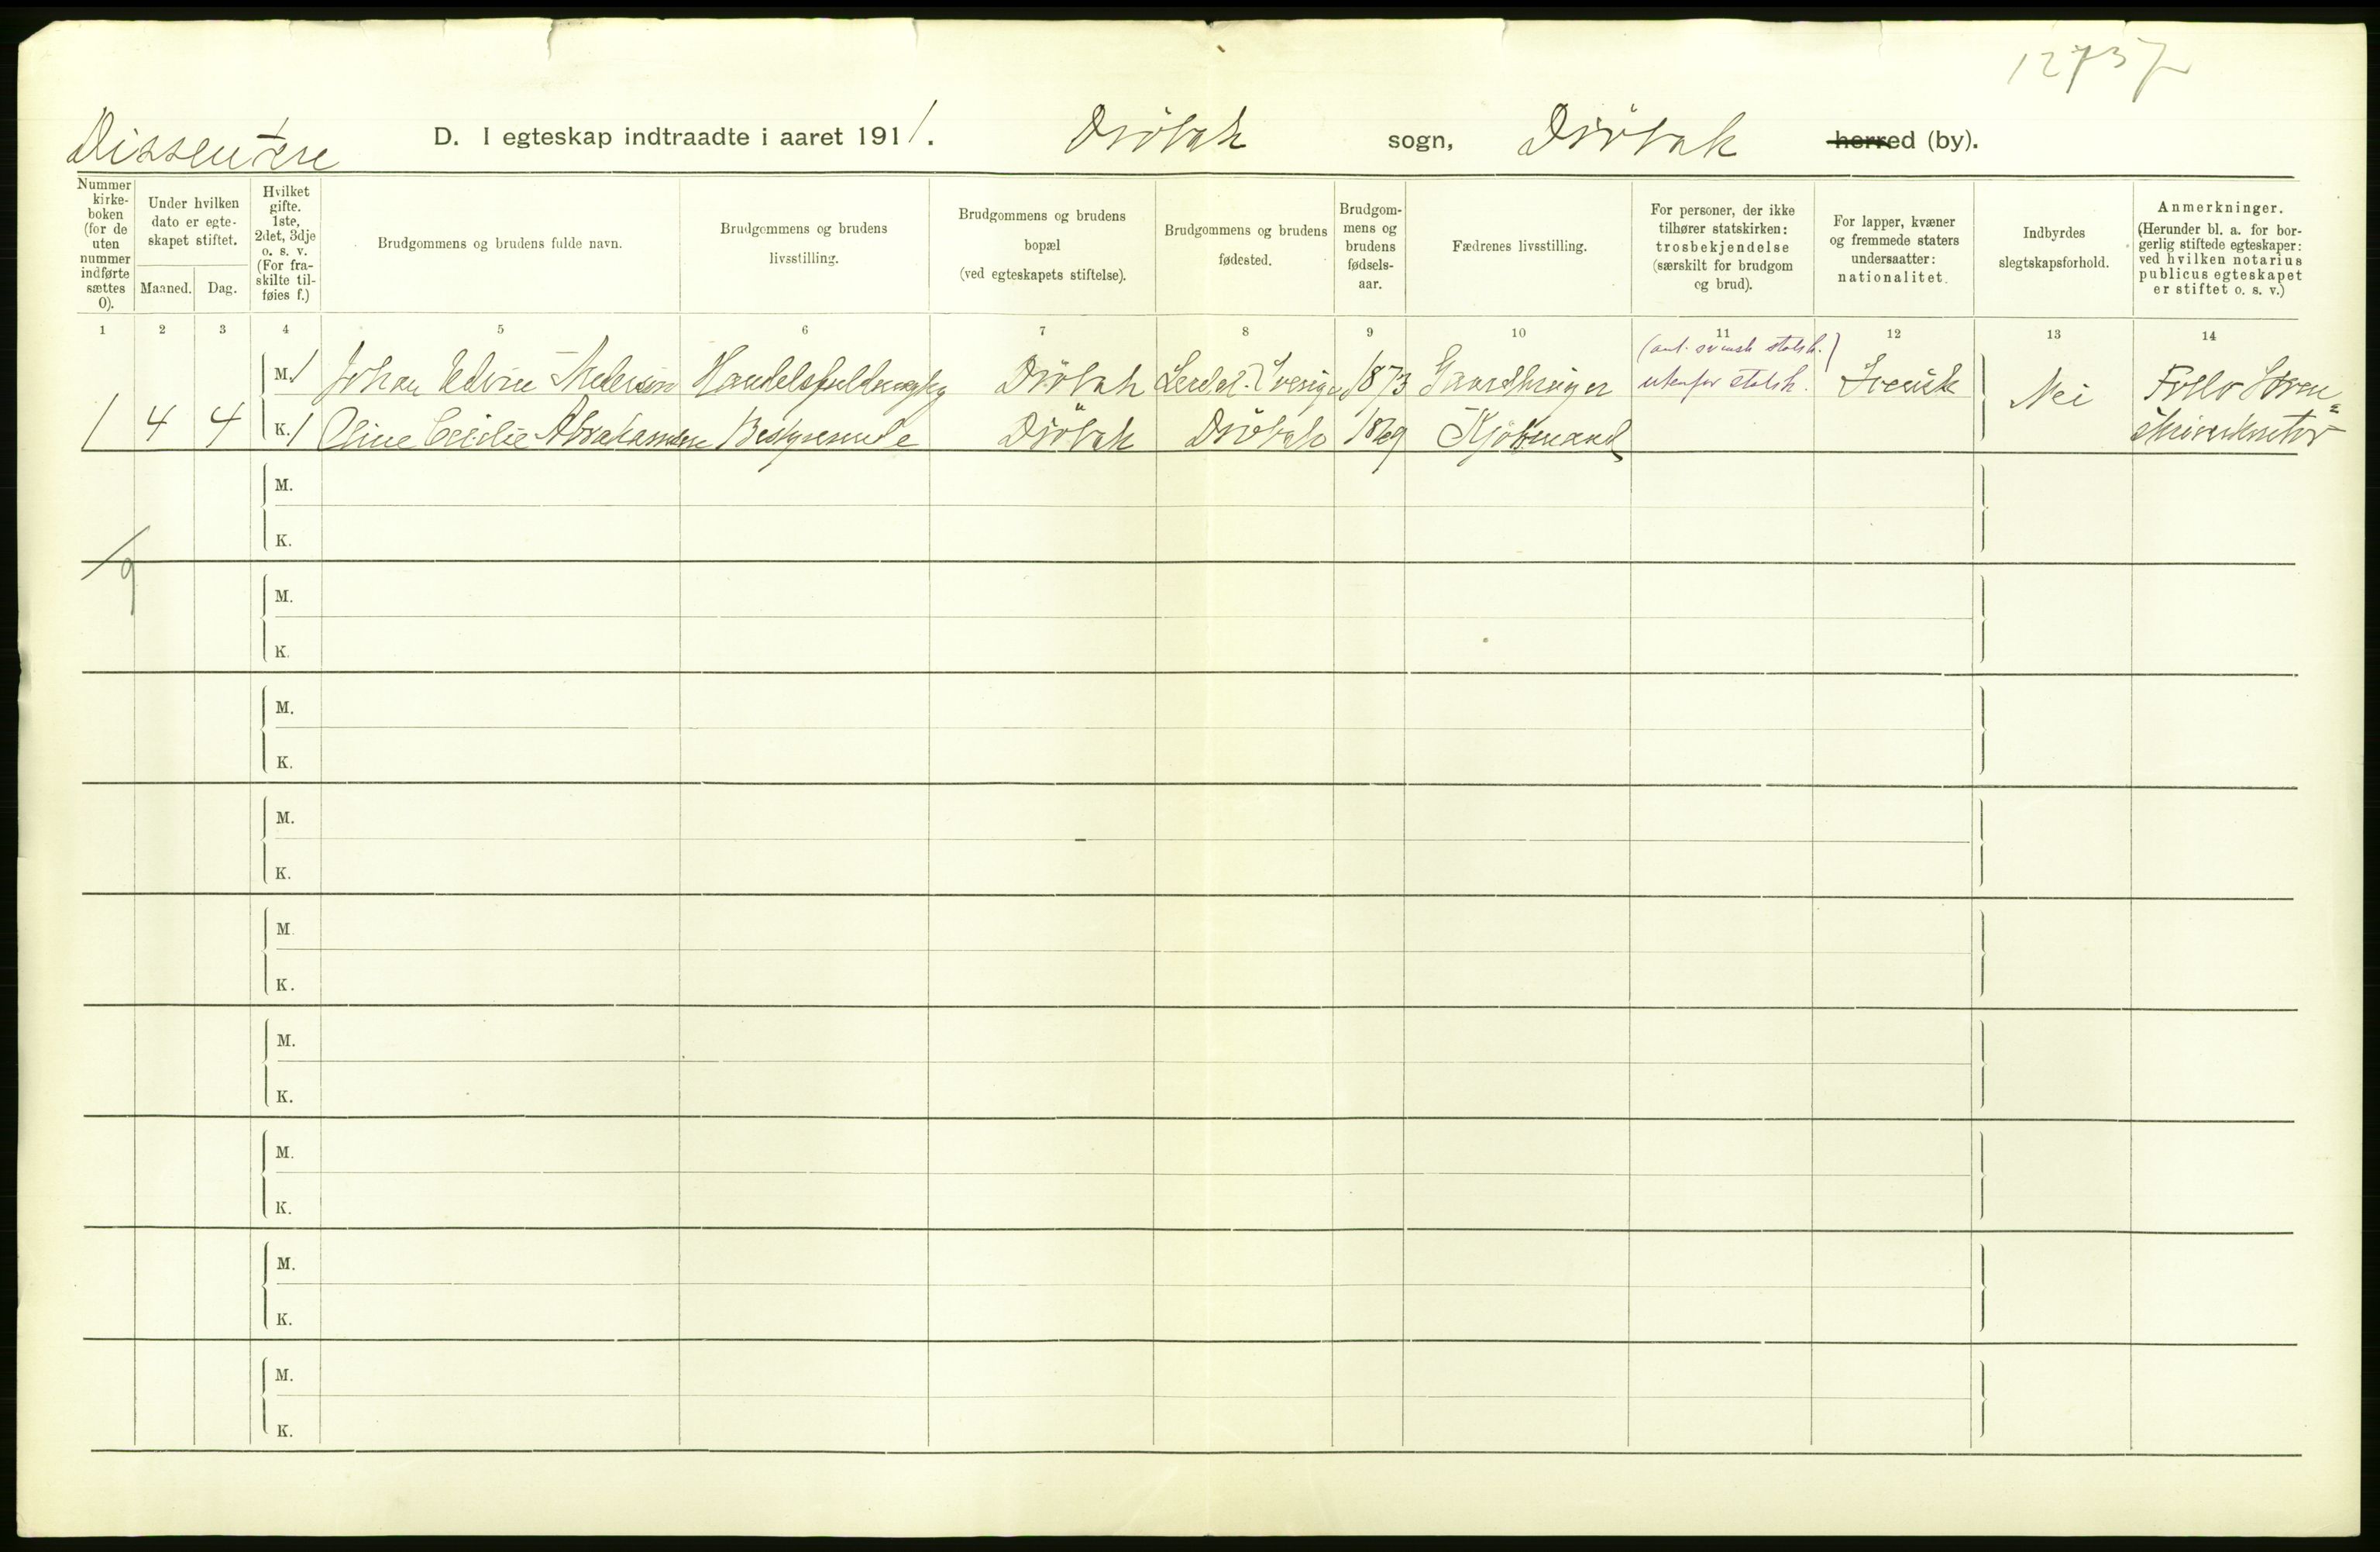 12737
Dissentere
D. I egteskap indtraadte i aaret 1911. Dröbak sogn, Dröbak herred (by).
Nummer kirke-boken (for de uten nummer indførte sættes 0).
Under hvilken dato er egte-skapet stiftet.
Maaned. Dag.
Hvilket gifte. 1ste, 2det, 3dje o. s. v. (For fra-skilte til-føies f.)
Brudgommens og brudens fulde navn.
Brudgommens og brudens livsstilling.
Brudgommens og brudens bopæl (ved egteskapets stiftelse).
Brudgommens og brudens fødested.
Brudgom-mens og brudens fødsels-aar.
Fædrenes livsstilling.
For personer, der ikke tilhører statskirken: trosbekjendelse (særskilt for brudgom og brud).
For lapper, kvæner og fremmede staters undersaatter: nationalitet.
Indbyrdes slegtskapsforhold.
Anmerkninger. (Herunder bl. a. for bor-gerlig stiftede egteskaper: ved hvilken notarius publicus egteskapet er stiftet o. s. v.)
1 2 3 4 5 6 7 8 9 10 11 12 13 14
(ant. svensk statsk.)
M. 1 Johan Edvin Andersson Handelsfuldmægtig Dröbak Sverige 1873 Gaardbruger utenfor statsk. Svensk Nei Follo Soren=
1 4 4 K. 1 Oline Cecilie Abrahamsen Bestyrerinde Dröbak Dröbak 1869 Kjöbmand skriverkontor
M.
K.
1/9
M.
K.
M.
K.
M.
K.
M.
K.
M.
K.
M.
K.
M.
K.
M.
K.